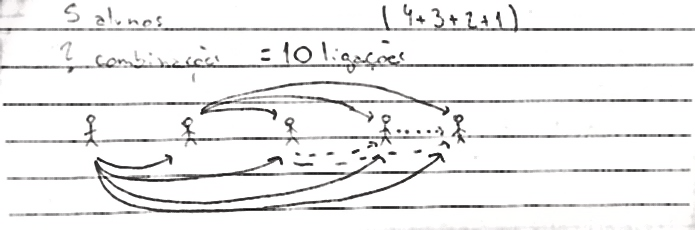 5 alunos (4+3+2+1)
? combinações = 10 ligações